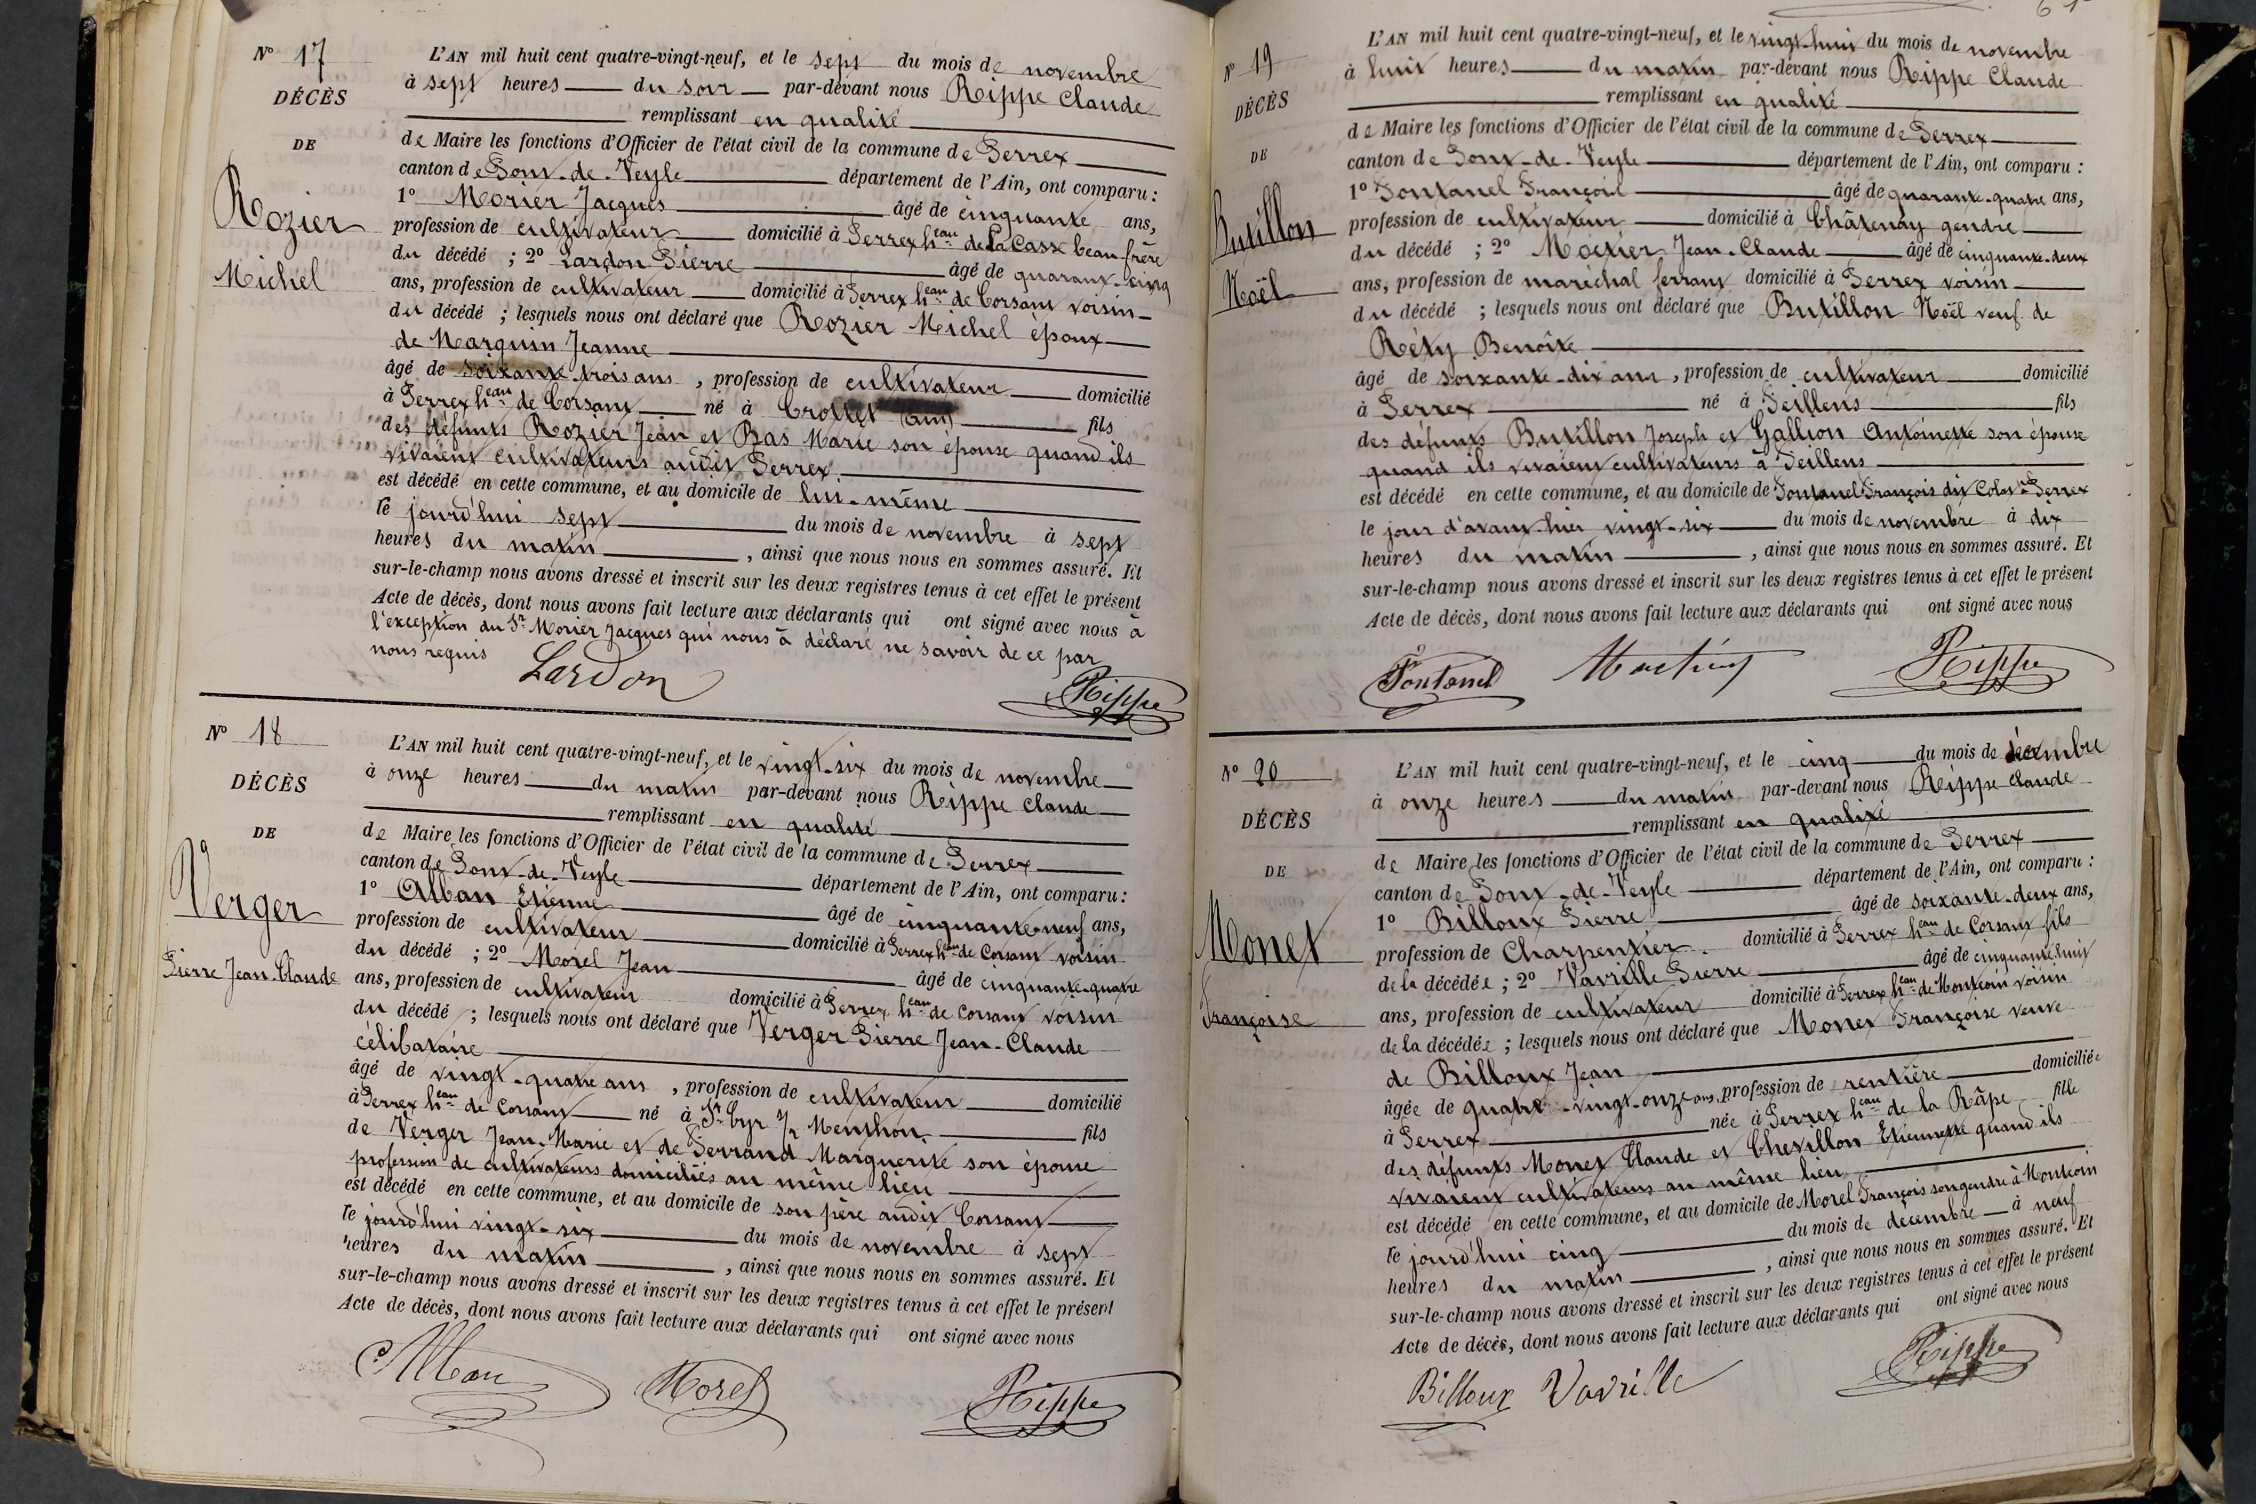 N° 17
DÉCÈS
DE
Rozier
Michel
L'AN mil huit cent quatre-vingt-neuf, et le sept du mois de novembre
à sept heures du soir par-devant nous Rippe Claude
remplissant en qualité
de Maire les fonctions d'Officier de l'état civil de la commune de Perrex
canton de Pont-de-Veyle département de l'Ain, ont comparu :
1° Morier Jacques âgé de cinquante ans,
profession de cultivateur domicilié à Perrex heau de La Casse beau frère
du décédé ; 2° Lardon Pierre âgé de quarante-cinq
ans, profession de cultivateur domicilié à Perrex heau de Corsant voisin
du décédé ; lesquels nous ont déclaré que Rozier Michel époux
de Marquin Jeanne
âgé de soixante-trois ans, profession de cultivateur domicilié
à Perrex heau de Corsant né à Crottet (Ain) fils
des défunts Rozier Jean et Bas Marie son épouse quand ils
vivaient cultivateurs audit Perrex
est décédé en cette commune, et au domicile de lui-même
le jourd'hui sept du mois de novembre à sept
heures du matin, ainsi que nous nous en sommes assuré. Et
sur-le-champ nous avons dressé et inscrit sur les deux registres tenus à cet effet le présent
Acte de décès, dont nous avons fait lecture aux déclarants qui ont signé avec nous à
l'exception du Sr Morier Jacques qui nous à déclaré ne savoir de ce par
nous requis
Lardon Rippe
N° 18
DÉCÈS
DE
Verger
Pierre Jean Claude
L'AN mil huit cent quatre-vingt-neuf, et le vingt-six du mois de novembre
à onze heures du matin par-devant nous Rippe Claude
remplissant en qualité
de Maire les fonctions d'Officier de l'état civil de la commune de Perrex
canton de Pont-de-Veyle département de l'Ain, ont comparu :
1° Alban Etienne âgé de cinquante-neuf ans,
profession de cultivateur domicilié à Perrex heau de Corsant voisin
du décédé ; 2° Morel Jean âgé de cinquante-quatre
ans, profession de cultivateur domicilié à Perrex heau de Corsant voisin
du décédé ; lesquels nous ont déclaré que Verger Pierre Jean-Claude
célibataire
âgé de vingt-quatre ans, profession de cultivateur domicilié
à Perrex heau de Corsant né à St Cyr s/ Menthon fils
de Verger Jean-Marie et de Ferrand Marguerite son épouse
profession de cultivateurs domiciliés au même lieu
est décédé en cette commune, et au domicile de son père audit Corsant
le jourd'hui vingt-six du mois de novembre à sept
heures du matin, ainsi que nous nous en sommes assuré. Et
sur-le-champ nous avons dressé et inscrit sur les deux registres tenus à cet effet le présent
Acte de décès, dont nous avons fait lecture aux déclarants qui ont signé avec nous
Alban Morel Rippe
N° 19
DÉCÈS
DE
Butillon
Noël
L'AN mil huit cent quatre-vingt-neuf, et le vingt-huit du mois de novembre
à huit heures du matin par-devant nous Rippe Claude
remplissant en qualité
de Maire les fonctions d'Officier de l'état civil de la commune de Perrex
canton de Pont-de-Veyle département de l'Ain, ont comparu :
1° Fontanel François âgé de quarante-quatre ans,
profession de cultivateur domicilié à Châtenay gendre
du décédé ; 2° Jean-Claude âgé de cinquante-deux
ans, profession de maréchal ferrant domicilié à Perrex voisin
du décédé ; lesquels nous ont déclaré que Butillon Noël veuf de
Réty Benoîte
âgé de soixante-dix ans, profession de cultivateur domicilié
à Perrex né à Feillens fils
des défunts Butillon Joseph et Gallion Antoinette son épouse
quand ils vivaient cultivateurs à Feillens
est décédé en cette commune, et au domicile de Fontanel François dit Colas à Perrex
le jour d'avant-hier vingt-six du mois de novembre à dix
heures du matin, ainsi que nous nous en sommes assuré. Et
sur-le-champ nous avons dressé et inscrit sur les deux registres tenus à cet effet le présent
Acte de décès, dont nous avons fait lecture aux déclarants qui ont signé avec nous
Fontanel Rippe
N° 20
DÉCÈS
DE
Monet
Françoise
L'AN mil huit cent quatre-vingt-neuf, et le cinq du mois de décembre
à onze heures du matin par-devant nous Rippe Claude
remplissant en qualité
de Maire les fonctions d'Officier de l'état civil de la commune de Perrex
canton de Pont-de-Veyle département de l'Ain, ont comparu :
1° Billoux Pierre âgé de soixante-deux ans,
profession de Charpentier domicilié à Perrex heau de Corsant fils
de la décédée ; 2° Vavrille Pierre âgé de cinquante-huit
ans, profession de cultivateur domicilié à Perrex heau de Montcoin voisin
de la décédée ; lesquels nous ont déclaré que Monet Françoise veuve
de Billoux Jean
âgée de quatre-vingt-onze ans, profession de rentière domiciliée
à Perrex née à Perrex heau de la Râpe fille
des défunts Monet Claude et Chevillon Etiennette quand ils
vivaient cultivateurs au même lieu
est décédé en cette commune, et au domicile de Morel François son gendre à Montcoin
le jourd'hui cinq du mois de décembre à neuf
heures du matin, ainsi que nous nous en sommes assuré. Et
sur-le-champ nous avons dressé et inscrit sur les deux registres tenus à cet effet le présent
Acte de décès, dont nous avons fait lecture aux déclarants qui ont signé avec nous
Billoux Vavrille Rippe